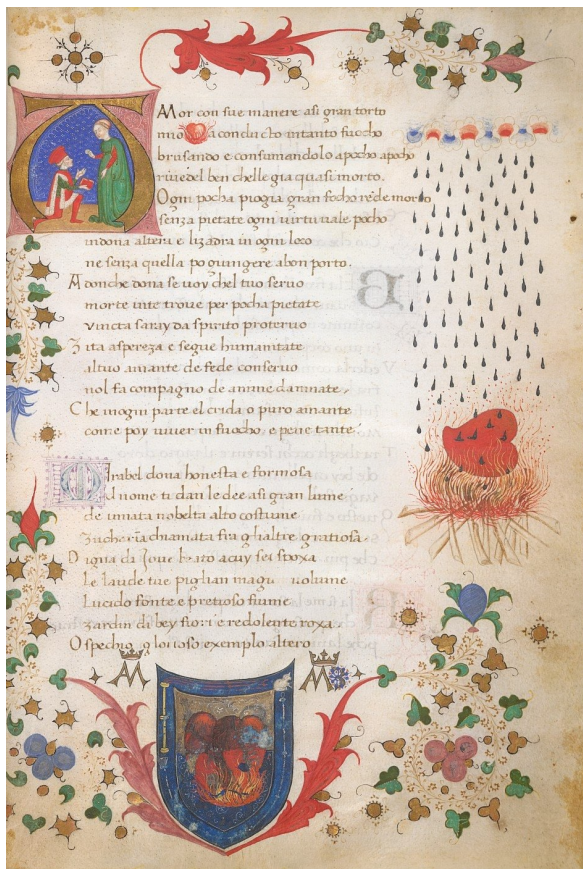 AMor con sue manere asi gran torto
mio a conducto intanto fuocho
brusando e consumandolo apocho apocho
rivedel ben chelle gia quasi morto.
Ogni pocha piogia gran focho redemorto
senza pietate ogni virtu vale pocho
indona altera e lizadra in ogni loco
ne senza quella po giungere abon porto.
Adonche dona se voy chel tuo servo
morte inte trove per pocha pietate
vincta saray da spirito protervo
Zita aspereza e segue humanitate
altuo amante de fede conservo
nol fa compagno de anime damnate
Che inogni parte el crida o puro amante
come poy viver in fuocho e pene tante
rabel dona honesta e formosa
l nome ti dan le dee asi gran lume
de innata nobelta alto costume
Zucheria chiamata fra ghaltre gratiosa
Digna di Jove beato acuy sei spoxa
Le laude tue piglian magn volume
Lucido fonte e pretioso fiume
zardin di bey fiori e redolente roxa
O spechio glorioso exemplo altero
AM
M